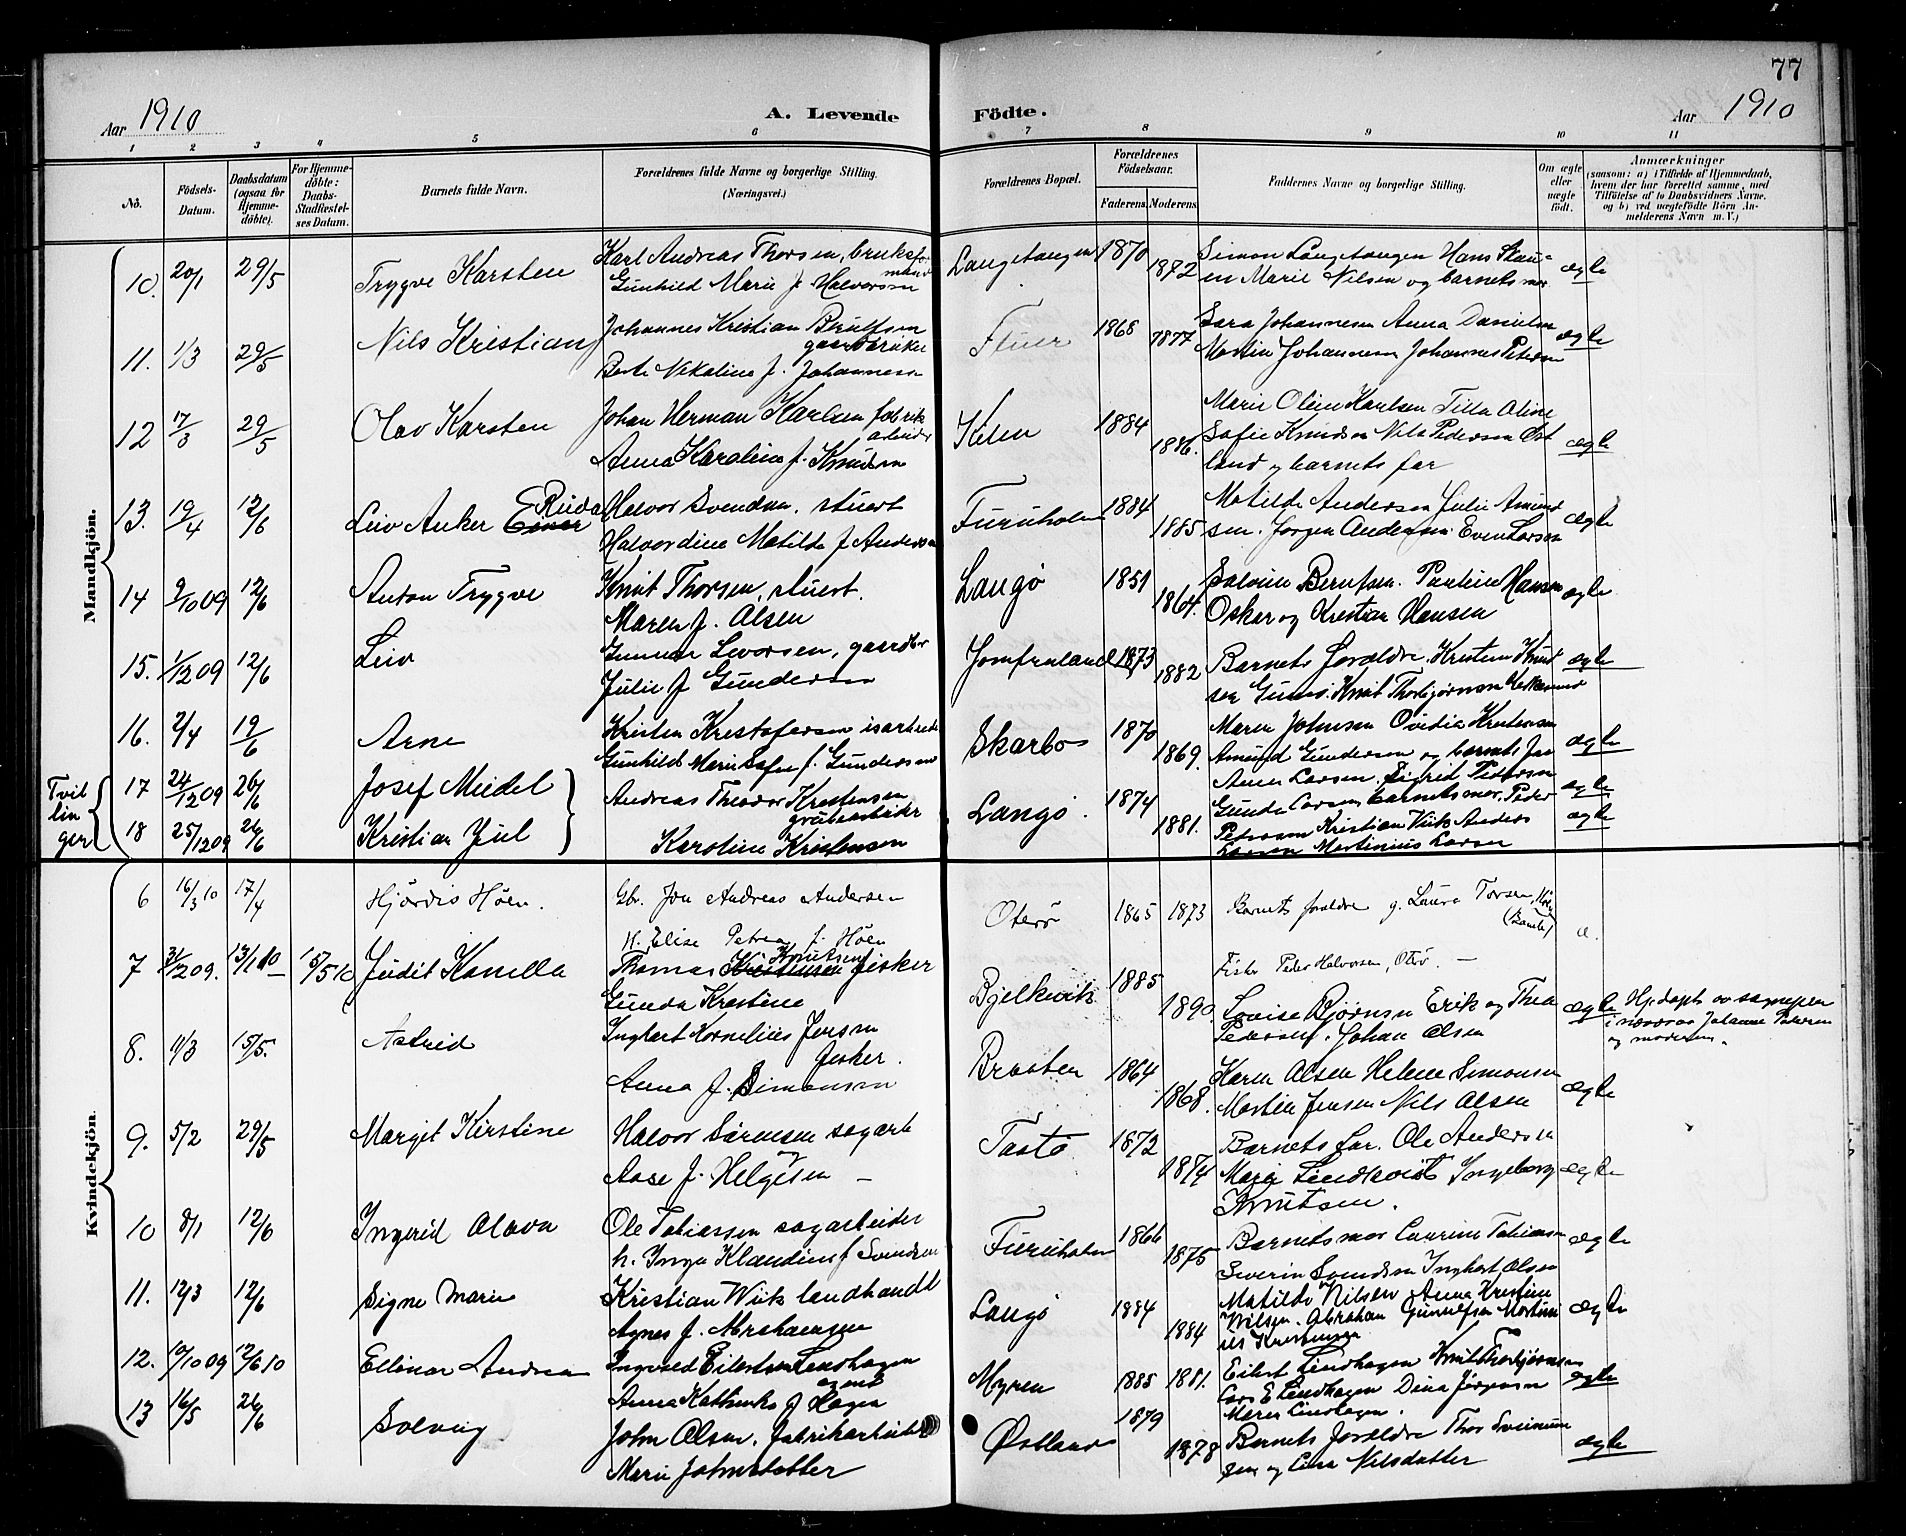 77
Aar 1910
A. Levende
Födte.
Aar 1910
1 2 3 4 5 6 7 8 9 10 11
No.
Födsels-Datum.
Daabsdatum (ogsaa for Hjemme-döbte).
For Hjemme-döbte: Daabs-Stadfæstel-ses Datum.
Barnets fulde Navn.
Forældrenes fulde Navne og borgerlige Stilling.
(Næringsvei.)
Forældrenes Bopæl.
Forældrenes Födselsaar.
Faderens. Moderens.
Faddernes Navne og borgerlige Stilling.
Om ægte eller uægte födt.
Anmærkninger
(saasom: a) i Tilfælde af Hjemmedaab,
hvem der har forrettet samme, med
Tilföielse af to Daabsvidners Navne.
og b) ved uægtefödte Börn An-
melderens Navn m. V.)
Mandkjön.
10. 20/1 29/5 Trygve Karsten
Karl Andreas Thorsen, bruksfor
mand
Gunhild Marie f. Halvorsen
Langetangen 1870 1872
Simon Langetangen Hans Skau-
en Marie Nilsen og barnets mor
ægte
11. 1/3 29/5 Nils Kristian
Johannes Kristian Berulfsen
gaardbruker
Berte Nikoline f. Johannesen
1868 1877
Sara Johannesen Anna Danielsen
Martin Johannesen Johannes Petersen
ægte
12 17/3 29/5 Olav Karsten
Johan Herman Karlsen fabrik
arbeider
Anna Karoline f. Knudsen
Kilen 1884 1886.
Marie Oline Karlsen Tilla Aline
Sofie Knudsen Nils Pedersen Øst
land og barnets far
ægte
13. 19/4 12/6 Leiv Anker Einar Ruda
Halvor Svendsen. stuert
Halvordine Matilde f Andersen
Furuholmen 1884 1885
Matilde Andersen Julie Amund
sen. Jørgen Andersen Even Larsen
ægte
14 9/10 09 12/6 Anton Trygve
Knut Thorsen, stuert.
Maren f. Olsen
Langø 1851 1864.
Salvine Berntsen. Pauline Hansen
Oskar og Kristian Hansen
ægte
15. 1/12 09 12/6 Leiv
Gunnar Levorsen, gaardbr
Julie f Gundersen
Jomfruland 1873 1882
Barnets foreldre. Kristian Knud
sen Gumø. Knut Thorbjørnsen
ægte
16. 2/4 19/6 Arne
Kristen Kristofersen isarbeider
Gunhild Marie Sofie f. Gundersen
Skarbo 1870 1869.
Maren Johnsen Ovidia Kristensen
Amund Gundersen og barnets far
ægte
Tvil
lin
ger
17 24/12 09 26/6 Josef Meidel
18 25/12 09 26/6 Kristian Juel
Andreas Theodor Kristensen
grubearbeider
Karoline Kristensen
Langø. 1874 1881.
Anne Larsen. Sigrid Pedersen
Gunda Larsen barnets mor. Peder
Pedersen Kristian Wiik Anders
Larsen Martinius Larsen
ægte
ægte
Kvindekjön.
6 16/3 10 17/4 Hjördis Höen.
Gbr. Jon Andreas Andersen
H. Elise Petrea f. Höen
Oterø 1865 1873
Barnets foreldre g. Laura Torsen, Höen
(Bamble)
Fisker Peder Halvorsen, Oterø. -
æ.
7 31/12 09. 13/1 10 15/5 10 Judit Konella
Thomas Kristensen Knutsen fisker
Gunda Kristine
Bjelkevik 1885 1890.
Lovise Bjørnsen Erik og Thea
Pedersen. Johan Olsen
ægte Hj.døpt av sognepr
i nærvær Johanne Pedersen
og moderen.
8. 11/3 15/5. Astrid
Inghart Kornelius Jensen
fisker.
Anna f. Simonsen
Braaten 1864 1868.
Karen Olsen Helene Simonsen
Martin Jensen Nils Olsen
ægte
9. 5/2 29/5 Margit Kirstine
Halvor Sørensen sagarb
og
Aase f. Helgesen -
Taatø 1872 1874
Barnets far. Ole Andersen
Maja Lindkvist Ingeborg
Knutsen.
ægte
10 8/1 12/6 Ingerid Olava
Ole Tobiassen sagarbeider
h. Inga Klaudine f Svendsen
Furuholmen 1866 1875
Barnets mor Laurine Tobiassen
Severin Svendsen Inghart Olsen
ægte
11. 12/3 12/6 Signe Marie
Kristian Wiik landhandl
Agnes f. Abrahamsen
Langø 1884 1884
Matilde Nilsen Anna Kristine
Nilsen. Abraham Gunnulfsen Martini
us Kristensen
ægte
12. 10/10 09 12/6 10 Ellinor Andrea
Ingvald Eilertsen Lindhagen
agent
Anna Kathinka f Hagen
Myren 1885 1881.
Eilert Lindhagen Knut Thorbjørnsen
Lars E Lindhagen Dina Jørgensen
Maren Lindhagen.
ægte
13 16/5 26/6 Solveig
John Olsen. fabrikarbeider
Marie Johnsdatter
Østland 1879 1878
Barnets foreldre Thor Sveinung
sen og Lina Nilsdatter
ægte